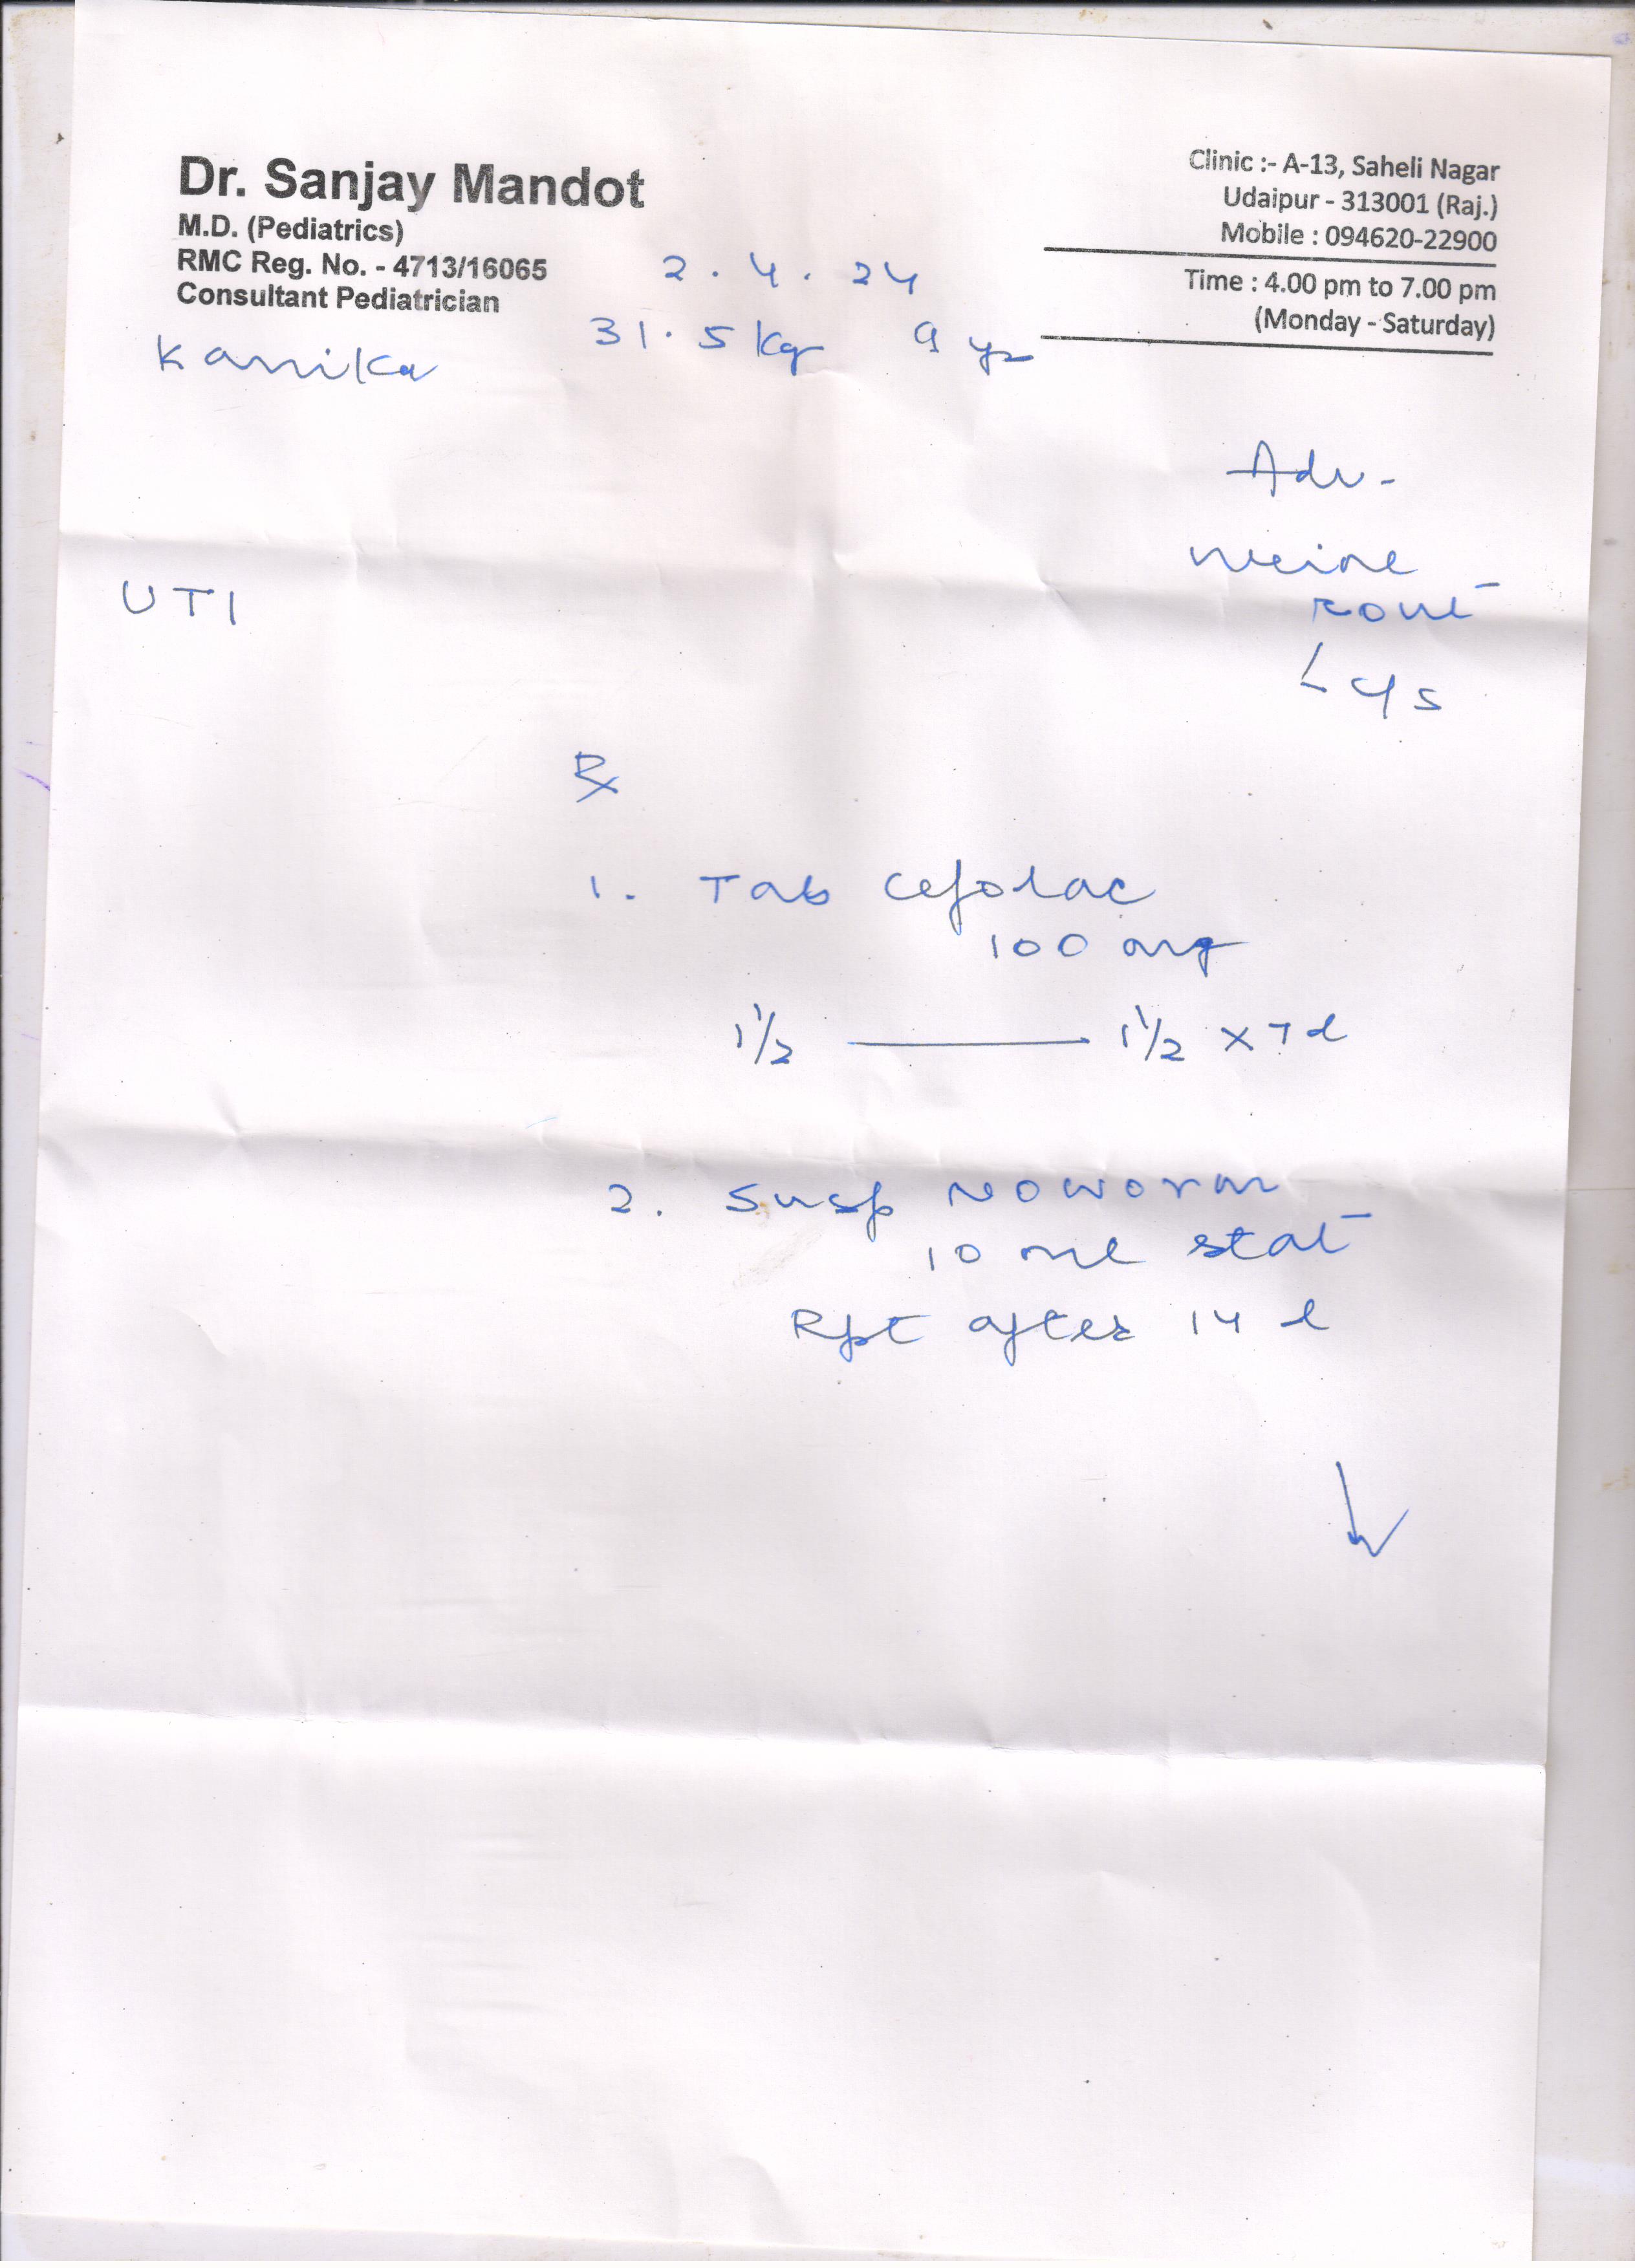 Dr. Sanjay Mandot
M.D. (Pediatrics)
RMC Reg. No. - 4713/16065
Consultant Pediatrician
Clinic :- A-13, Saheli Nagar
Udaipur - 313001 (Raj.)
Mobile : 094620-22900
Time : 4.00 pm to 7.00 pm
(Monday - Saturday)
2.4.24
Kanika 31.5 kg 9 yr
Adv-
urine
UTI
rout
c/s
Rx
1. Tab Cefolac
100 mg
1½ — 1½ x 7 d
2. Susp Noworm
10 ml stat
Rpt after 14 d